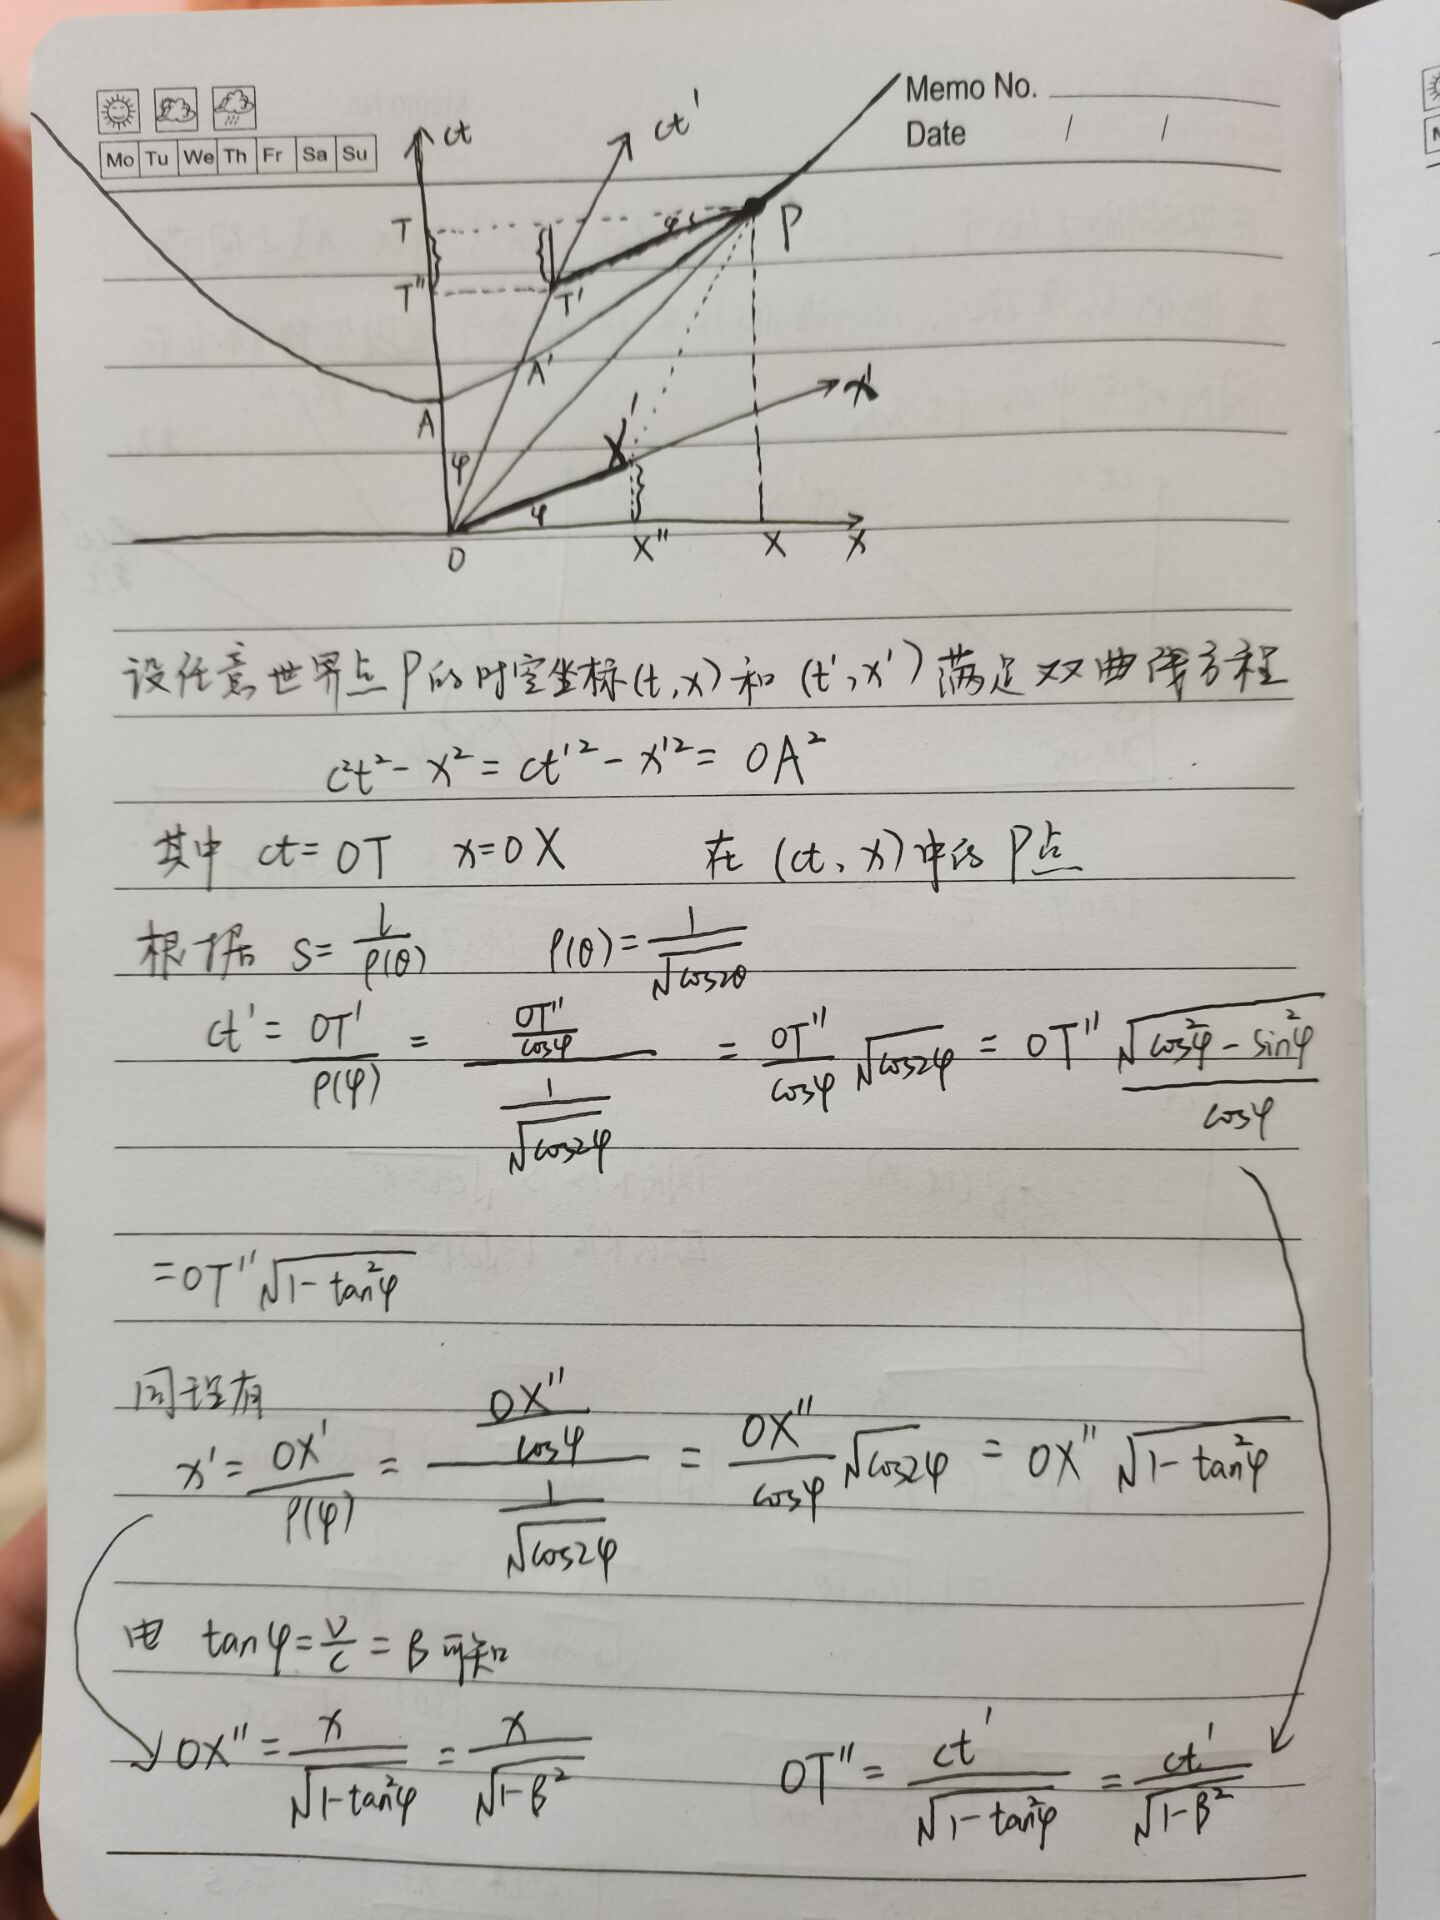 Memo No.
Mo Tu We Th Fr Sa Su
Date / /
ct
ct'
T
T''
T'
φ
P
A'
A
x'
X'
φ
φ
O
X''
X
x
设任意世界点P的时空坐标(t,x)和(t',x')满足双曲线方程
c²t²-x²=ct'²-x'²=OA²
其中 ct=OT x=OX 在(ct,x)中的P点
根据 S=l/ρ(θ) ρ(θ)=1/√cos2θ
ct'=OT'/ρ(φ)=(OT''/cosφ)/(1/√cos2φ)=OT''/cosφ √cos2φ=OT''√(cos²φ-sin²φ)/cosφ
=OT''√(1-tan²φ)
同理有
x'=OX'/ρ(φ)=(OX''/cosφ)/(1/√cos2φ)=OX''/cosφ √cos2φ=OX''√(1-tan²φ)
由 tanφ=v/c=β可知
OX''=x/√(1-tan²φ)=x/√(1-β²) OT''=ct'/√(1-tan²φ)=ct'/√(1-β²)